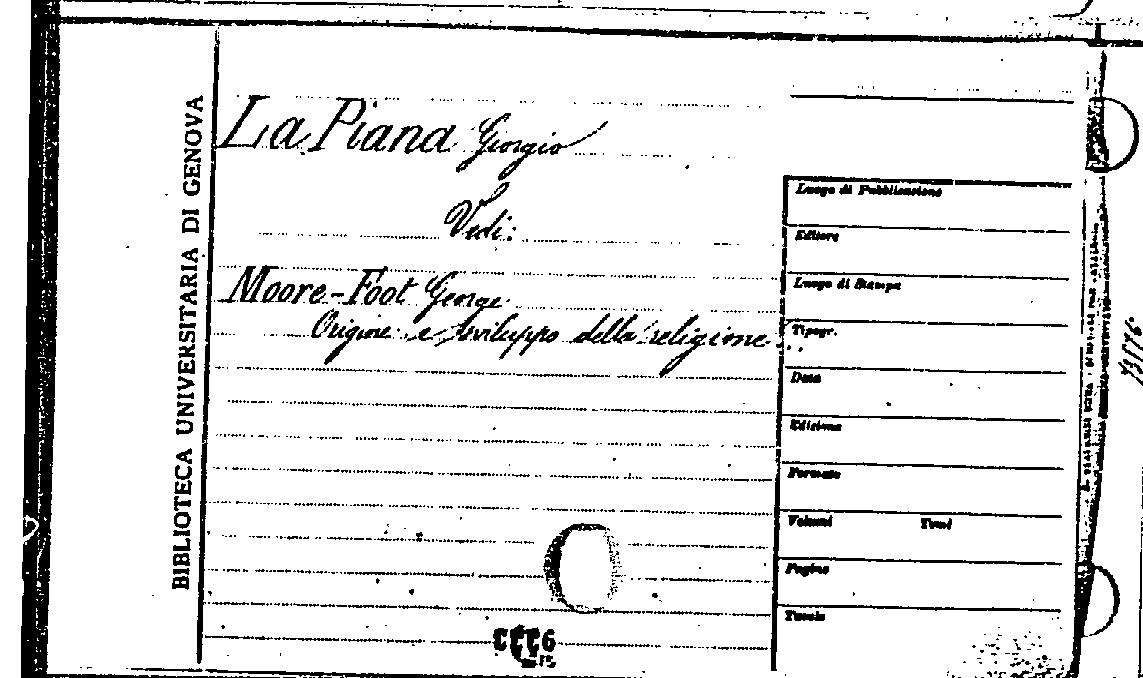 BIBLIOTECA UNIVERSITARIA DI GENOVA
La Piana Giorgio
Vedi:
Moore-Foot George
Origine e sviluppo della religione...
Luogo di Pubblicazione
Editore
Luogo di Stampa
Tipogr.
Data
Edizione
Formato
Volumi Tomi
Pagine
Tavole